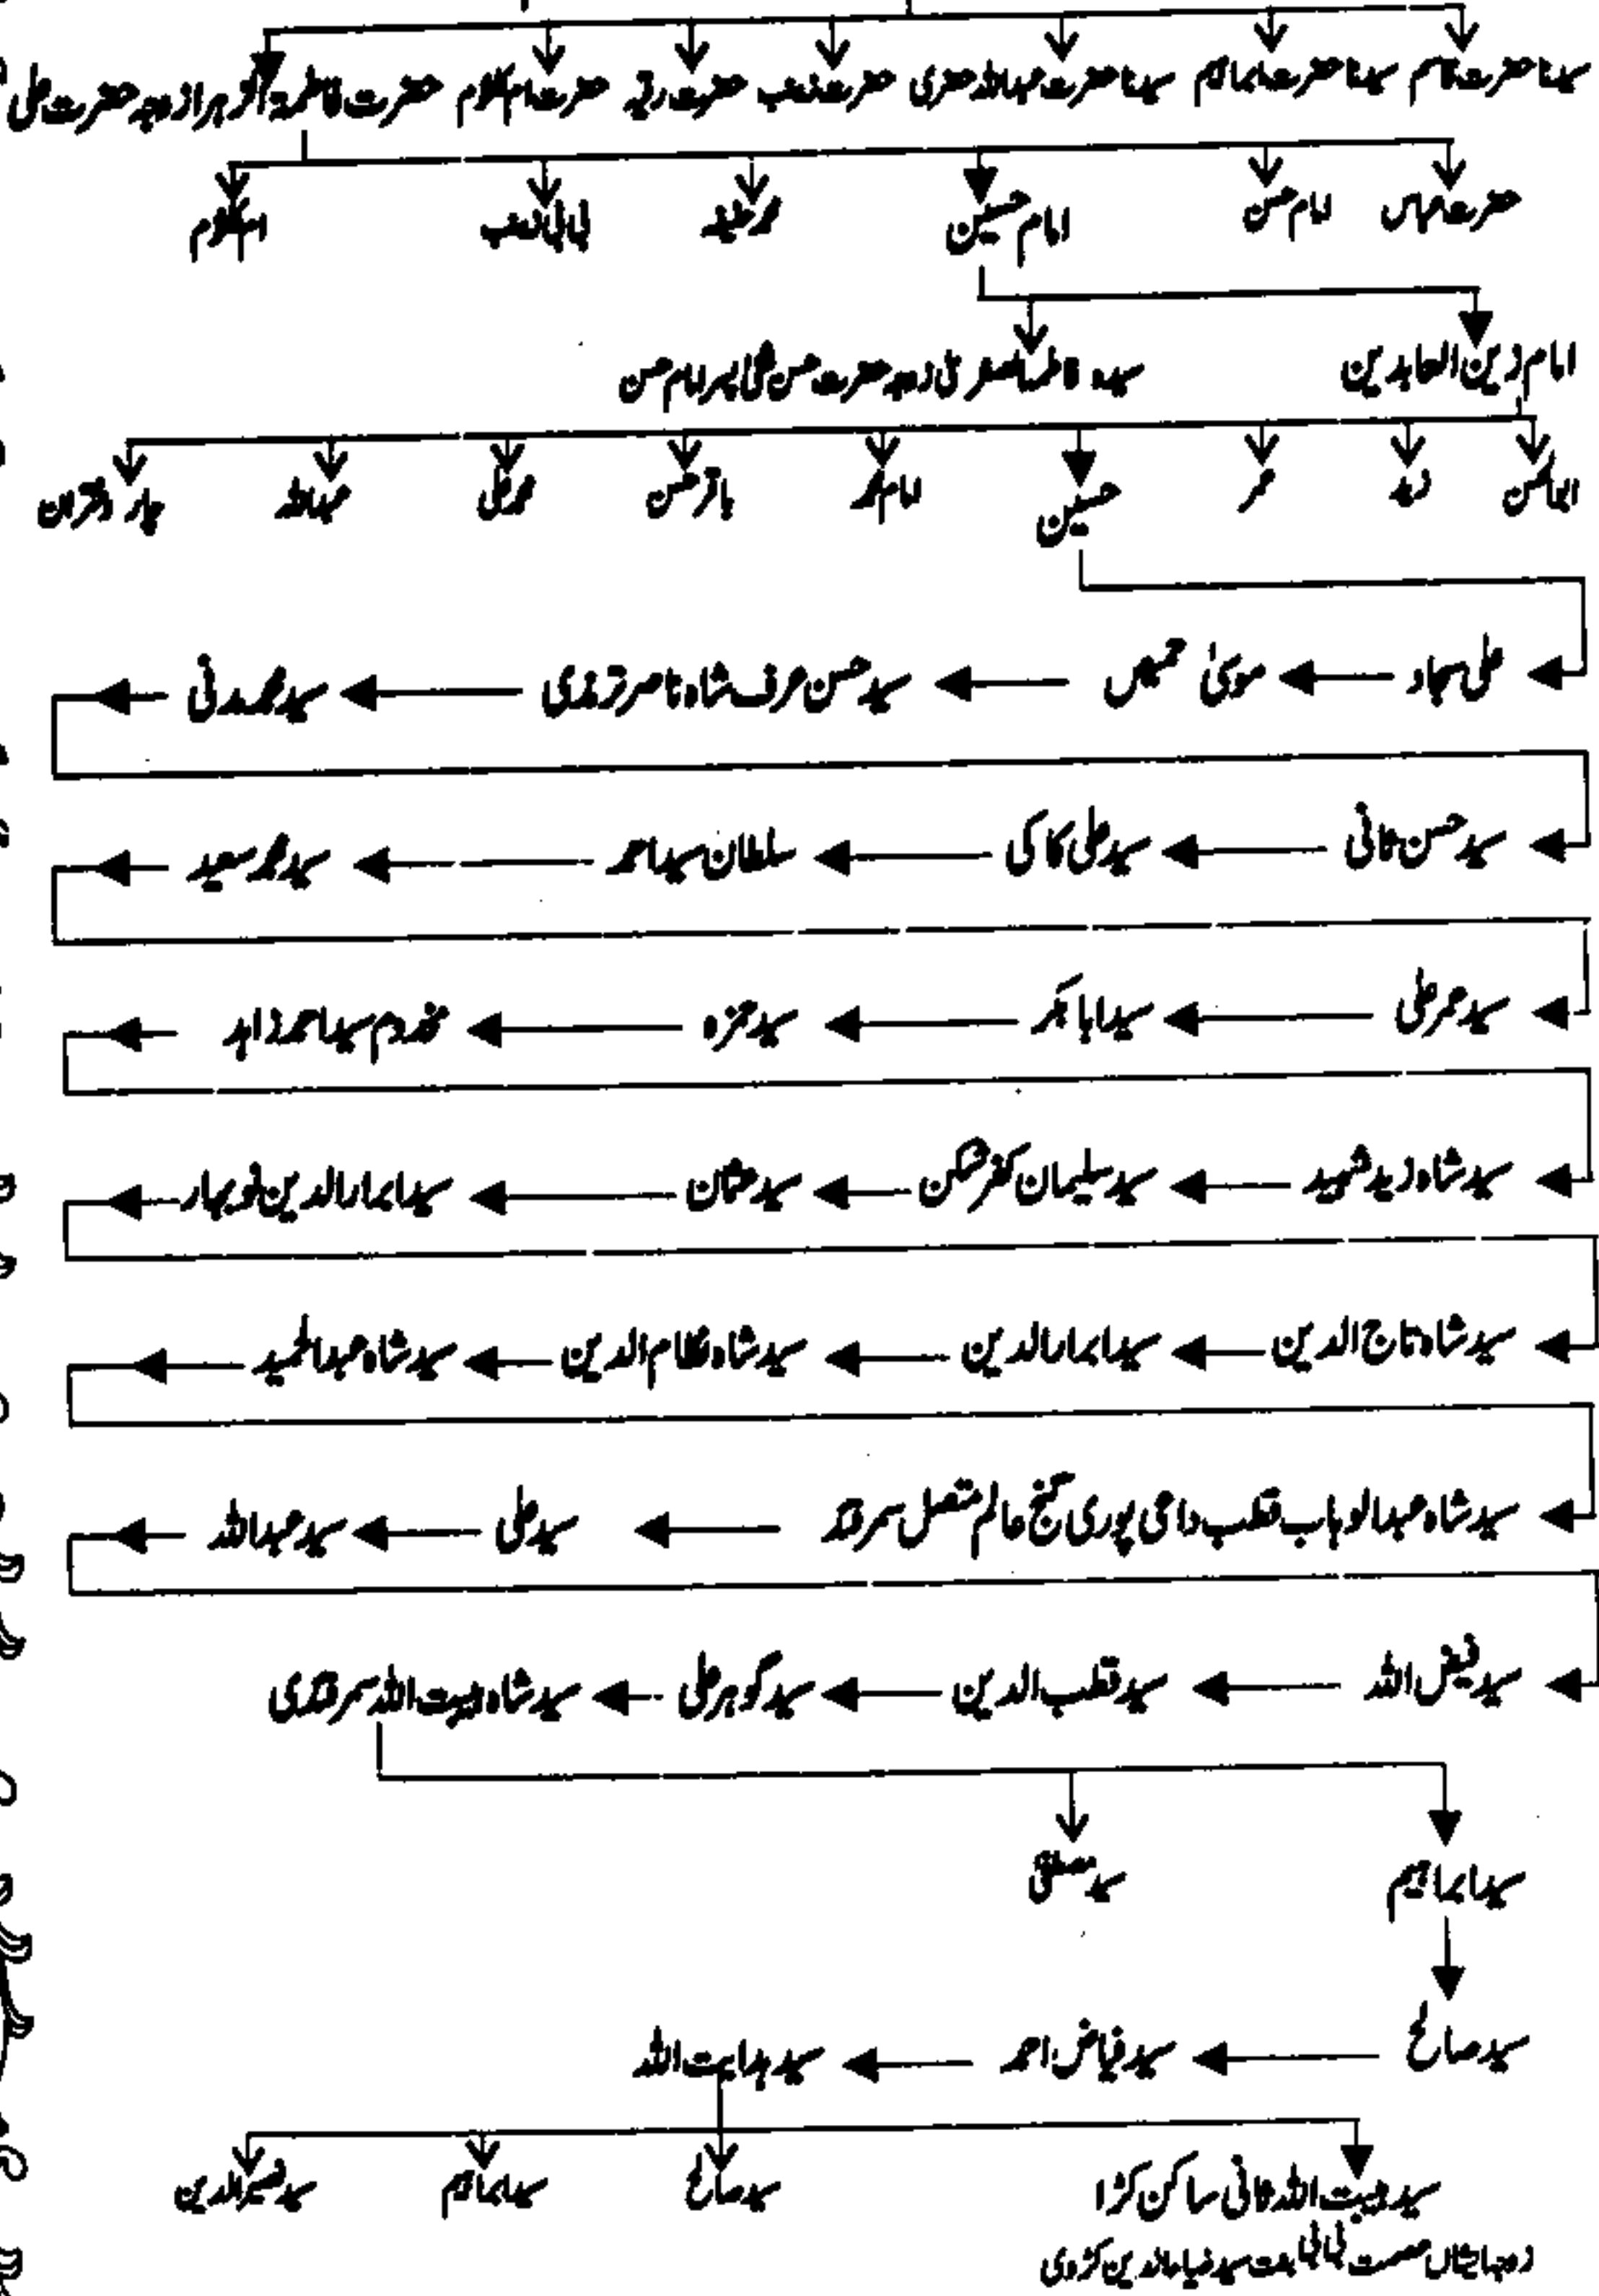 سیدنا حضرت قاسم سیدنا حضرت ابراہیم سیدنا حضرت عبداللہ حضرت زینب حضرت رقیہ حضرت ام کلثوم حضرت فاطمۃ الزہرا زوجہ حضرت علی
حضرت عباس امام حسن امام حسین محمد حنیفہ بی بی زینب ام کلثوم
امام زین العابدین سیدہ فاطمہ صغریٰ زوجہ حضرت حسن مثنیٰ پسر امام حسن
ابوالحسن زید عمر حسین امام محمد باقر حسن محمد علی عبداللہ چار دختران
علی سجاد موسیٰ حمیص سید حسن عرف شاہ ناصر ترمذی سید محمد مدنی
سید حسن ثانی سید علی کاکی سلطان سید احمد سید محمد سعید
سید عمر علی سید ابابکر سید حمزہ مخدوم سید احمد زاہد
سید شاہ زید شہید سید سلیمان کفرشکن سید عثمان سید ابرارالدین نوبہار
سید شاہ تاج الدین سید ابرارالدین سید شاہ نظام الدین سید شاہ عبدالحمید
سید شاہ عبدالوہاب قطب دامی پوری گنج عالم متصل سمرقند سید علی سید عبداللہ
سید فیض اللہ سید قطب الدین سید گوہر علی سید شاہ ہیبت اللہ سمرقندی
سید ابراہیم سید مصطفیٰ
سید صالح سید فیاض احمد سید ہدایت اللہ
سید ہیبت اللہ ثانی ساکن کڑا سید صالح سید ابراہیم سید نصیرالدین
زوجہ ایشاں عصمت بی بی بنت سید ضیاءالدین کڑوی